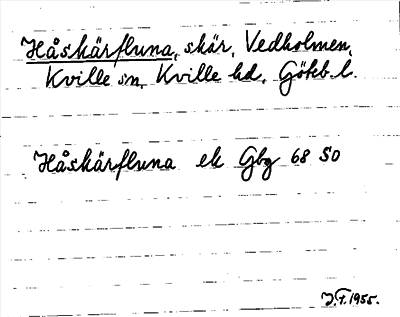 Håskärfluna, skär, Vedholmen,
Kville sn, Kville hd, Göteb. l.
Håskärfluna ek Gbg 68 SO
J.T. 1955.